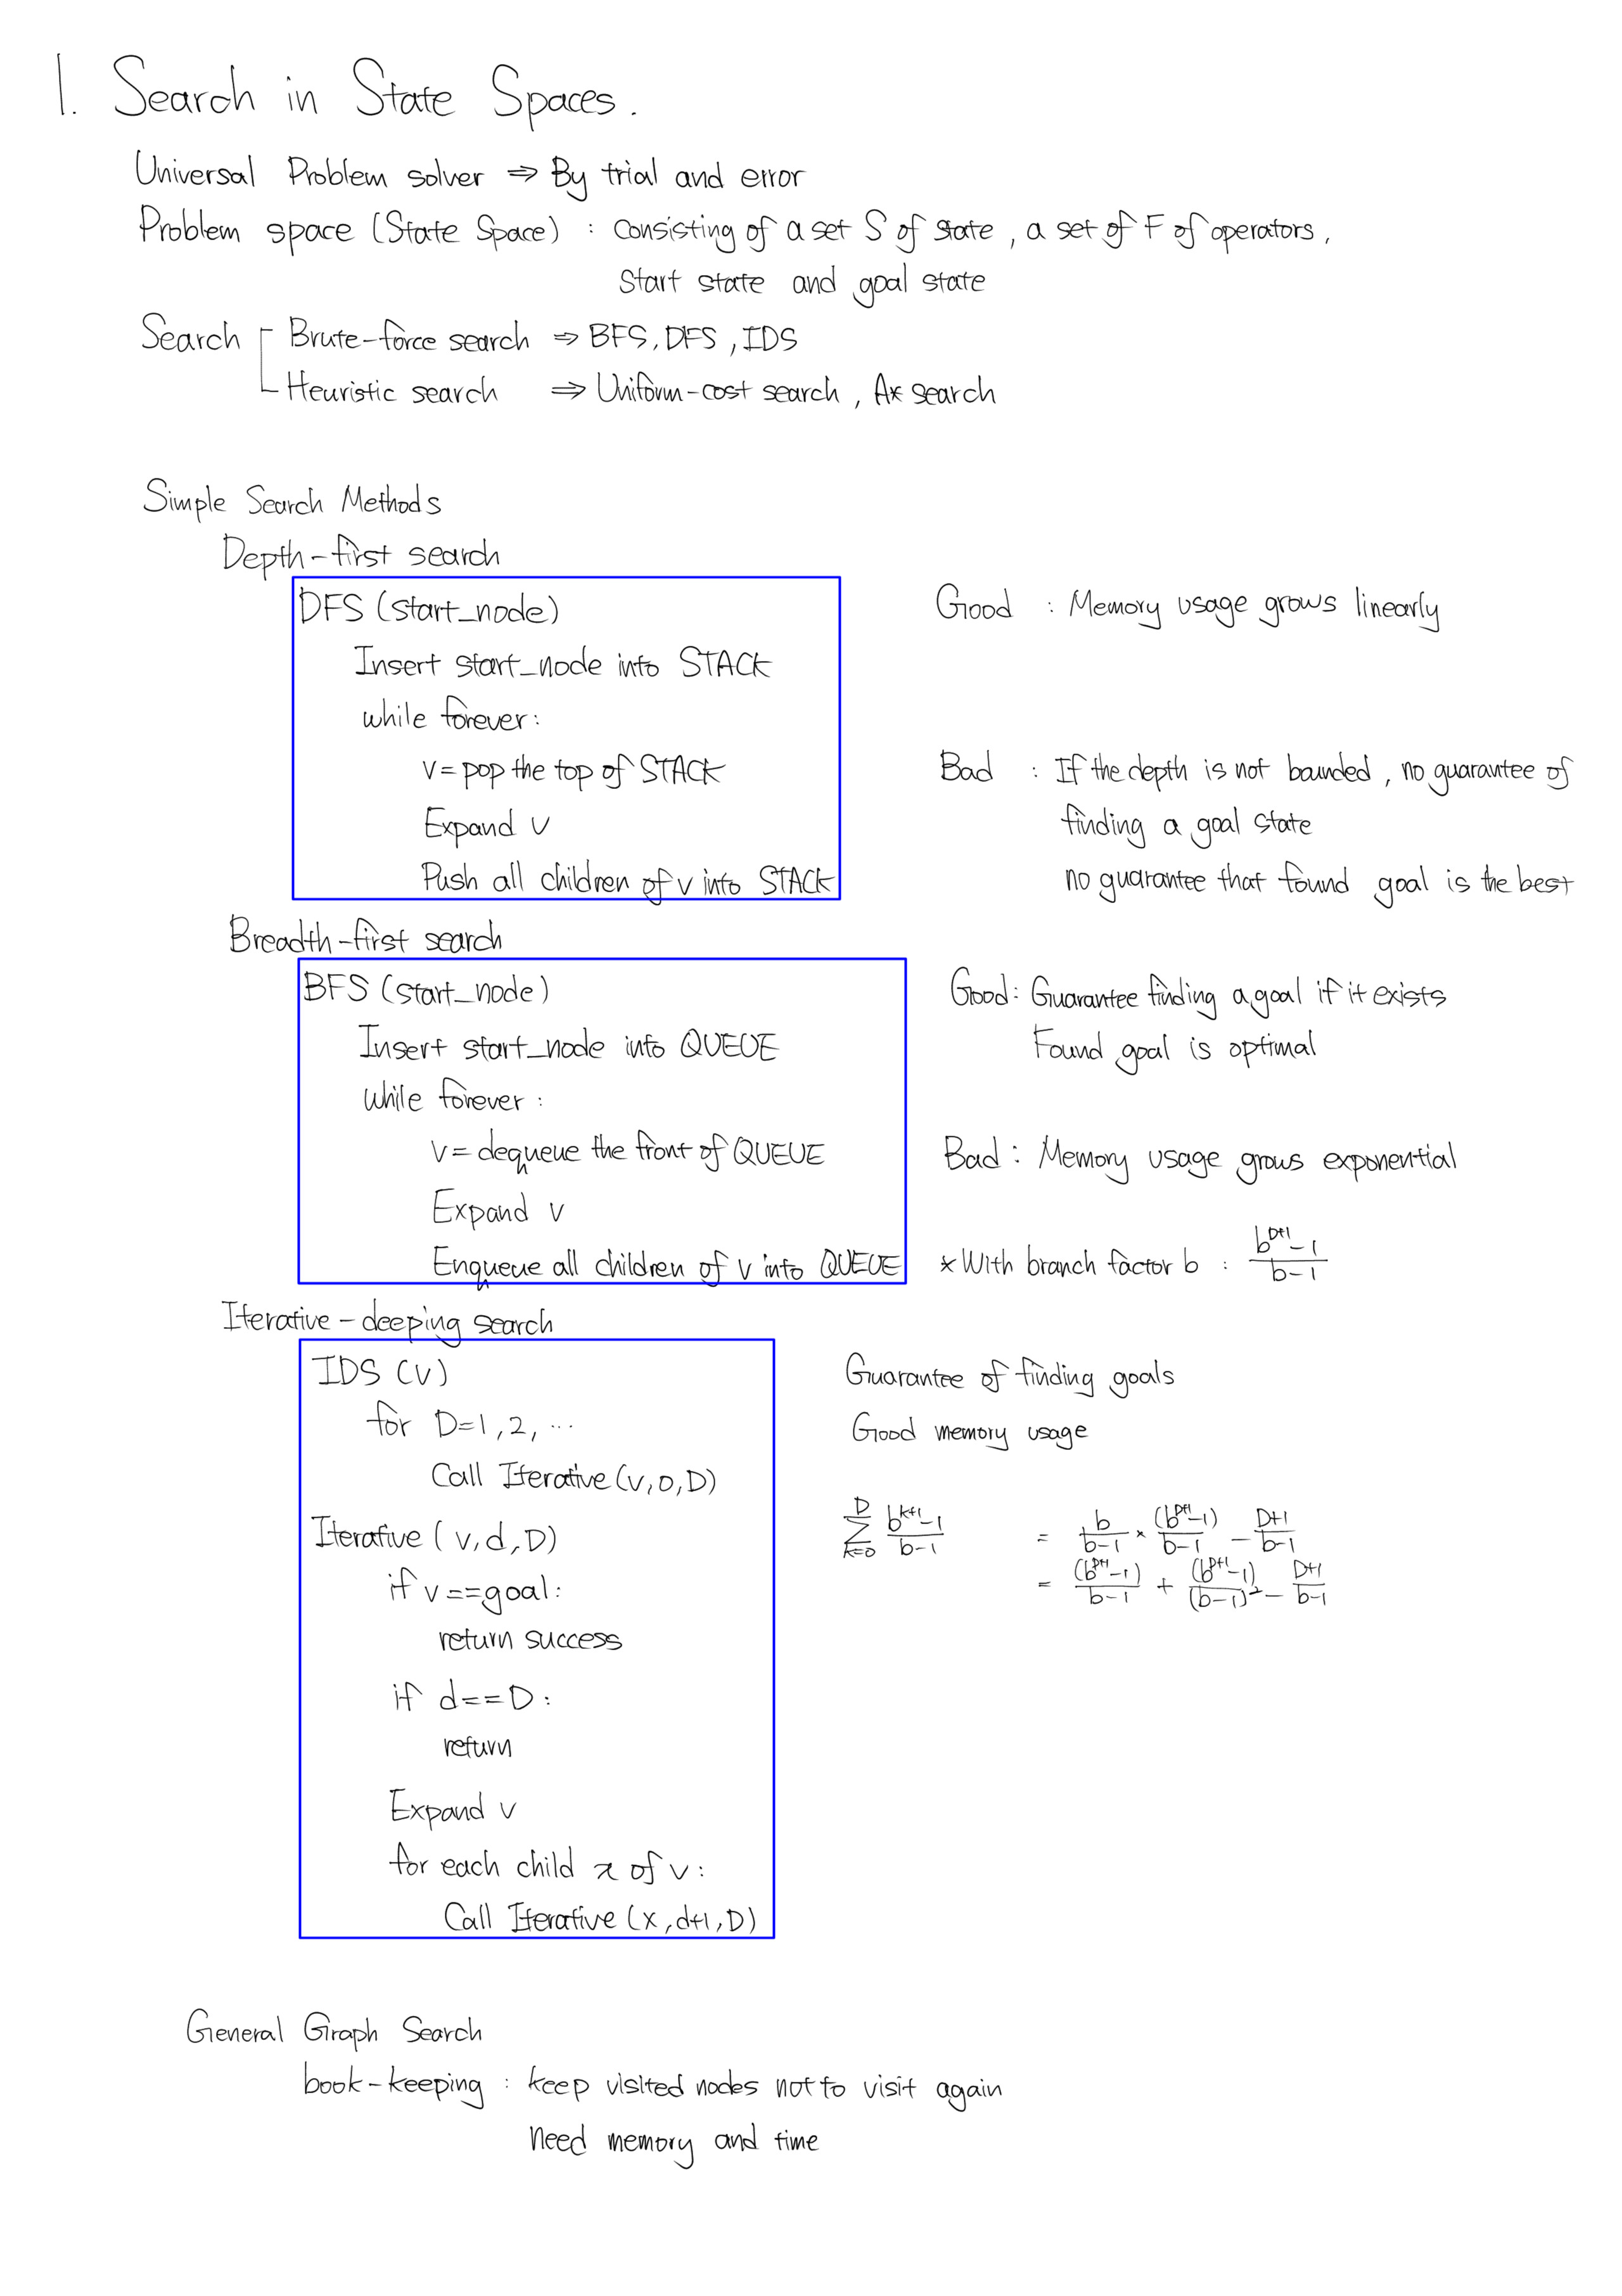 1. Search in State Spaces.
Universal Problem solver ⇒ By trial and error
Problem space (State Space) : consisting of a set S of state, a set of F of operators,
start state and goal state
Search
Brute-force search ⇒ BFS, DFS, IDS
Heuristic search ⇒ Uniform-cost search, A* search
Simple Search Methods
Depth-first search
DFS (start_node)
Insert start_node into STACK
while forever:
v = pop the top of STACK
Expand v
Push all children of v into STACK
Good : Memory usage grows linearly
Bad : If the depth is not bounded, no guarantee of
finding a goal state
no guarantee that found goal is the best
Breadth-first search
BFS (start_node)
Insert start_node into QUEUE
while forever :
v = dequeue the front of QUEUE
Expand v
Enqueue all children of v into QUEUE
Good : Guarantee finding a goal if it exists
Found goal is optimal
Bad : Memory usage grows exponential
* With branch factor b : (b^(D+1) - 1)/(b-1)
Iterative-deeping search
IDS (v)
for D=1, 2, ...
Call Iterative (v, 0, D)
Iterative (v, d, D)
if v == goal:
return success
if d == D :
return
Expand v
for each child x of v:
Call Iterative (x, d+1, D)
Guarantee of finding goals
Good memory usage
∑_{k=0}^{D} (b^(k+1) - 1)/(b-1) = b/(b-1) × (b^(D+1) - 1)/(b-1) - (D+1)/(b-1)
= (b^(D+1) - 1)/(b-1) + (b^(D+1) - 1)/(b-1)^2 - (D+1)/(b-1)
General Graph Search
book-keeping : keep visited nodes not to visit again
need memory and time